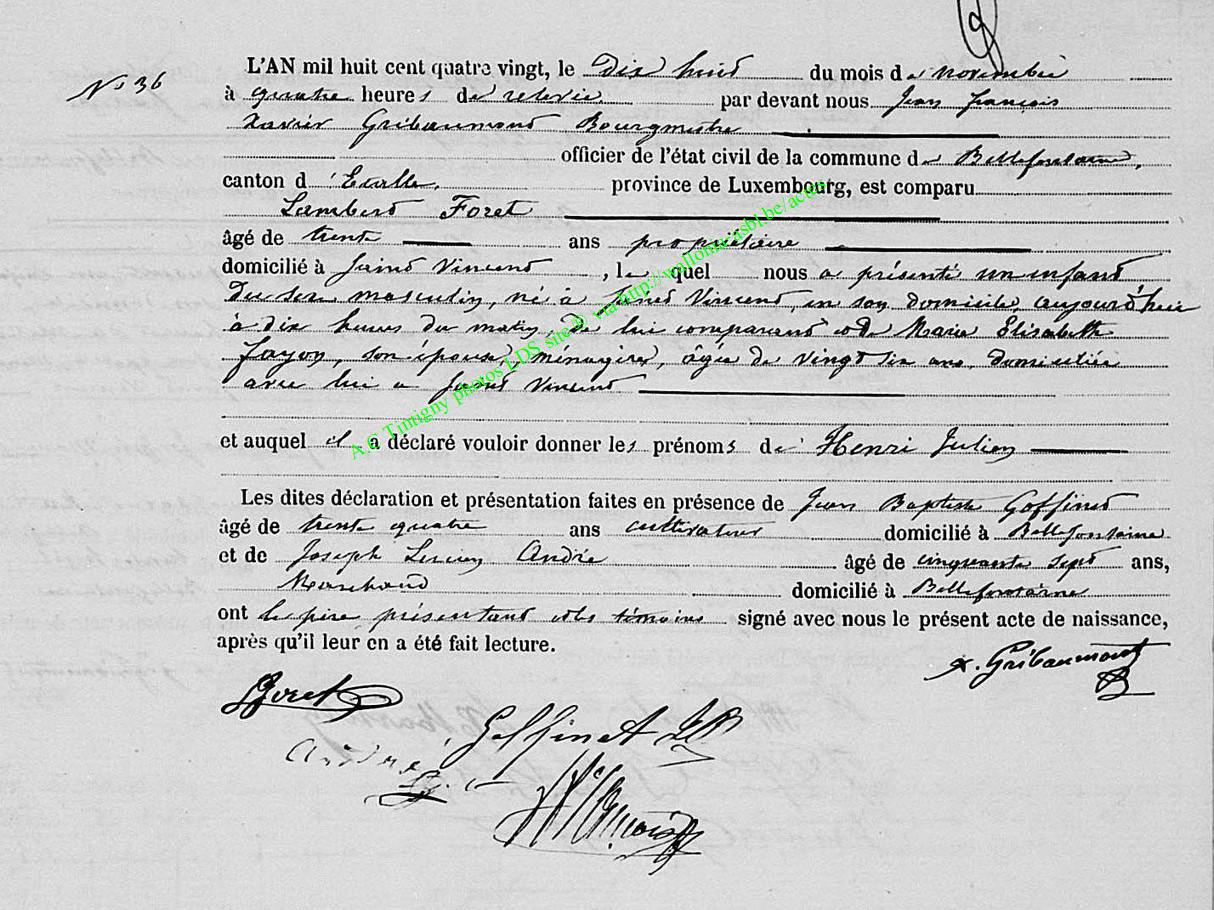 N° 36
L'AN mil huit cent quatre vingt, le Dix huit du mois de novembre
à quatre heures de relevée par devant nous Jean François
Xavier Gribaumont Bourgmestre
officier de l'état civil de la commune de Bellefontaine,
canton d'Etalle, province de Luxembourg, est comparu
Lambert Foret
âgé de trente ans propriétaire
domicilié à Saint Vincent, le quel nous a présenté un enfant
Du sexe masculin, né à Saint Vincent, en son domicile aujourd'hui
à dix heures du matin, de lui comparant et de Marie Elisabeth
Jayon, son épouse, ménagère, âgée de vingt six ans, domiciliée
avec lui à Saint Vincent
et auquel il a déclaré vouloir donner les prénoms de Henri Julien
Les dites déclaration et présentation faites en présence de Jean Baptiste Goffinet
âgé de trente quatre ans cultivateur domicilié à Bellefontaine
et de Joseph Lucien André âgé de cinquante sept ans,
Marchand domicilié à Bellefontaine
ont le père présentant et les témoins signé avec nous le présent acte de naissance,
après qu'il leur en a été fait lecture.
x. Gribaumont
LForet
Goffinet JB
André
A.C Tintigny photos LDS, site® via http://wallonia.asbl.be/actes